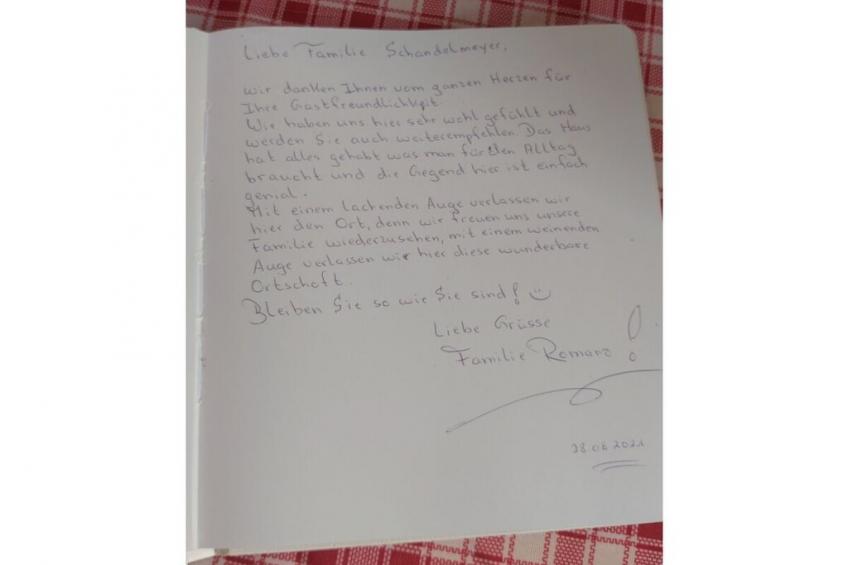 Liebe Familie Schandelmeyer,
wir danken Ihnen vom ganzen Herzen für
Ihre Gastfreundlichkeit.
Wir haben uns hier sehr wohl gefühlt und
werden Sie auch weiterempfehlen. Das Haus
hat alles gehabt was man für den Alltag
braucht und die Gegend hier ist einfach
genial.
Mit einem lachenden Auge verlassen wir
hier den Ort, denn wir freuen uns unsere
Familie wiederzusehen, mit einem weinenden
Auge verlassen wir hier diese wunderbare
Ortschaft.
Bleiben Sie so wie Sie sind!
Liebe Grüsse
Familie